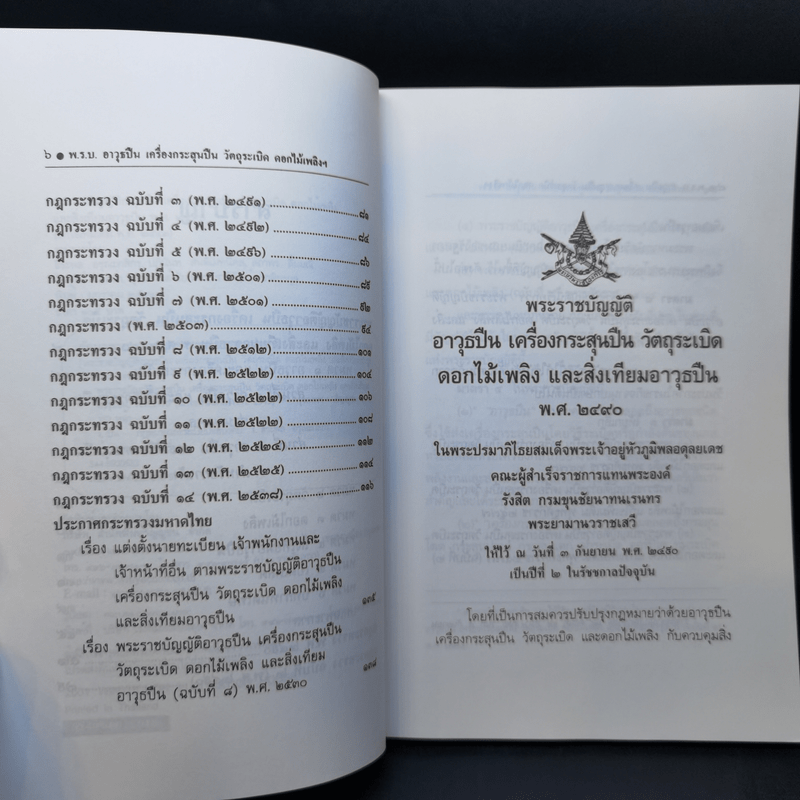 ๖ ● พ.ร.บ. อาวุธปืน เครื่องกระสุนปืน วัตถุระเบิด ดอกไม้เพลิงฯ
กฎกระทรวง ฉบับที่ ๓ (พ.ศ. ๒๔๙๑)....................๘๑
กฎกระทรวง ฉบับที่ ๔ (พ.ศ. ๒๔๙๒)....................๘๔
กฎกระทรวง ฉบับที่ ๕ (พ.ศ. ๒๔๙๖)....................๘๖
กฎกระทรวง ฉบับที่ ๖ (พ.ศ. ๒๕๐๑)....................๘๙
กฎกระทรวง ฉบับที่ ๗ (พ.ศ. ๒๕๐๑)....................๙๒
กฎกระทรวง (พ.ศ. ๒๕๐๓)....................๙๔
กฎกระทรวง ฉบับที่ ๘ (พ.ศ. ๒๕๑๒)....................๑๐๑
กฎกระทรวง ฉบับที่ ๙ (พ.ศ. ๒๕๒๒)....................๑๐๔
กฎกระทรวง ฉบับที่ ๑๐ (พ.ศ. ๒๕๒๒)....................๑๐๖
กฎกระทรวง ฉบับที่ ๑๑ (พ.ศ. ๒๕๒๒)....................๑๐๘
กฎกระทรวง ฉบับที่ ๑๒ (พ.ศ. ๒๕๒๔)....................๑๑๒
กฎกระทรวง ฉบับที่ ๑๓ (พ.ศ. ๒๕๒๕)....................๑๑๔
กฎกระทรวง ฉบับที่ ๑๔ (พ.ศ. ๒๕๓๘)....................๑๑๖
ประกาศกระทรวงมหาดไทย
เรื่อง แต่งตั้งนายทะเบียน เจ้าพนักงานและ
เจ้าหน้าที่อื่น ตามพระราชบัญญัติอาวุธปืน
เครื่องกระสุนปืน วัตถุระเบิด ดอกไม้เพลิง
และสิ่งเทียมอาวุธปืน
เรื่อง พระราชบัญญัติอาวุธปืน เครื่องกระสุนปืน
วัตถุระเบิด ดอกไม้เพลิง และสิ่งเทียม
อาวุธปืน (ฉบับที่ ๘) พ.ศ. ๒๕๓๐
พระราชบัญญัติ
อาวุธปืน เครื่องกระสุนปืน วัตถุระเบิด
ดอกไม้เพลิง และสิ่งเทียมอาวุธปืน
พ.ศ. ๒๔๙๐
ในพระปรมาภิไธยสมเด็จพระเจ้าอยู่หัวภูมิพลอดุลยเดช
คณะผู้สำเร็จราชการแทนพระองค์
รังสิต กรมขุนชัยนาทนเรนทร
พระยามานวราชเสวี
ให้ไว้ ณ วันที่ ๓ กันยายน พ.ศ. ๒๔๙๐
เป็นปีที่ ๒ ในรัชชกาลปัจจุบัน
โดยที่เป็นการสมควรปรับปรุงกฎหมายว่าด้วยอาวุธปืน
เครื่องกระสุนปืน วัตถุระเบิด และดอกไม้เพลิง กับควบคุมสิ่ง